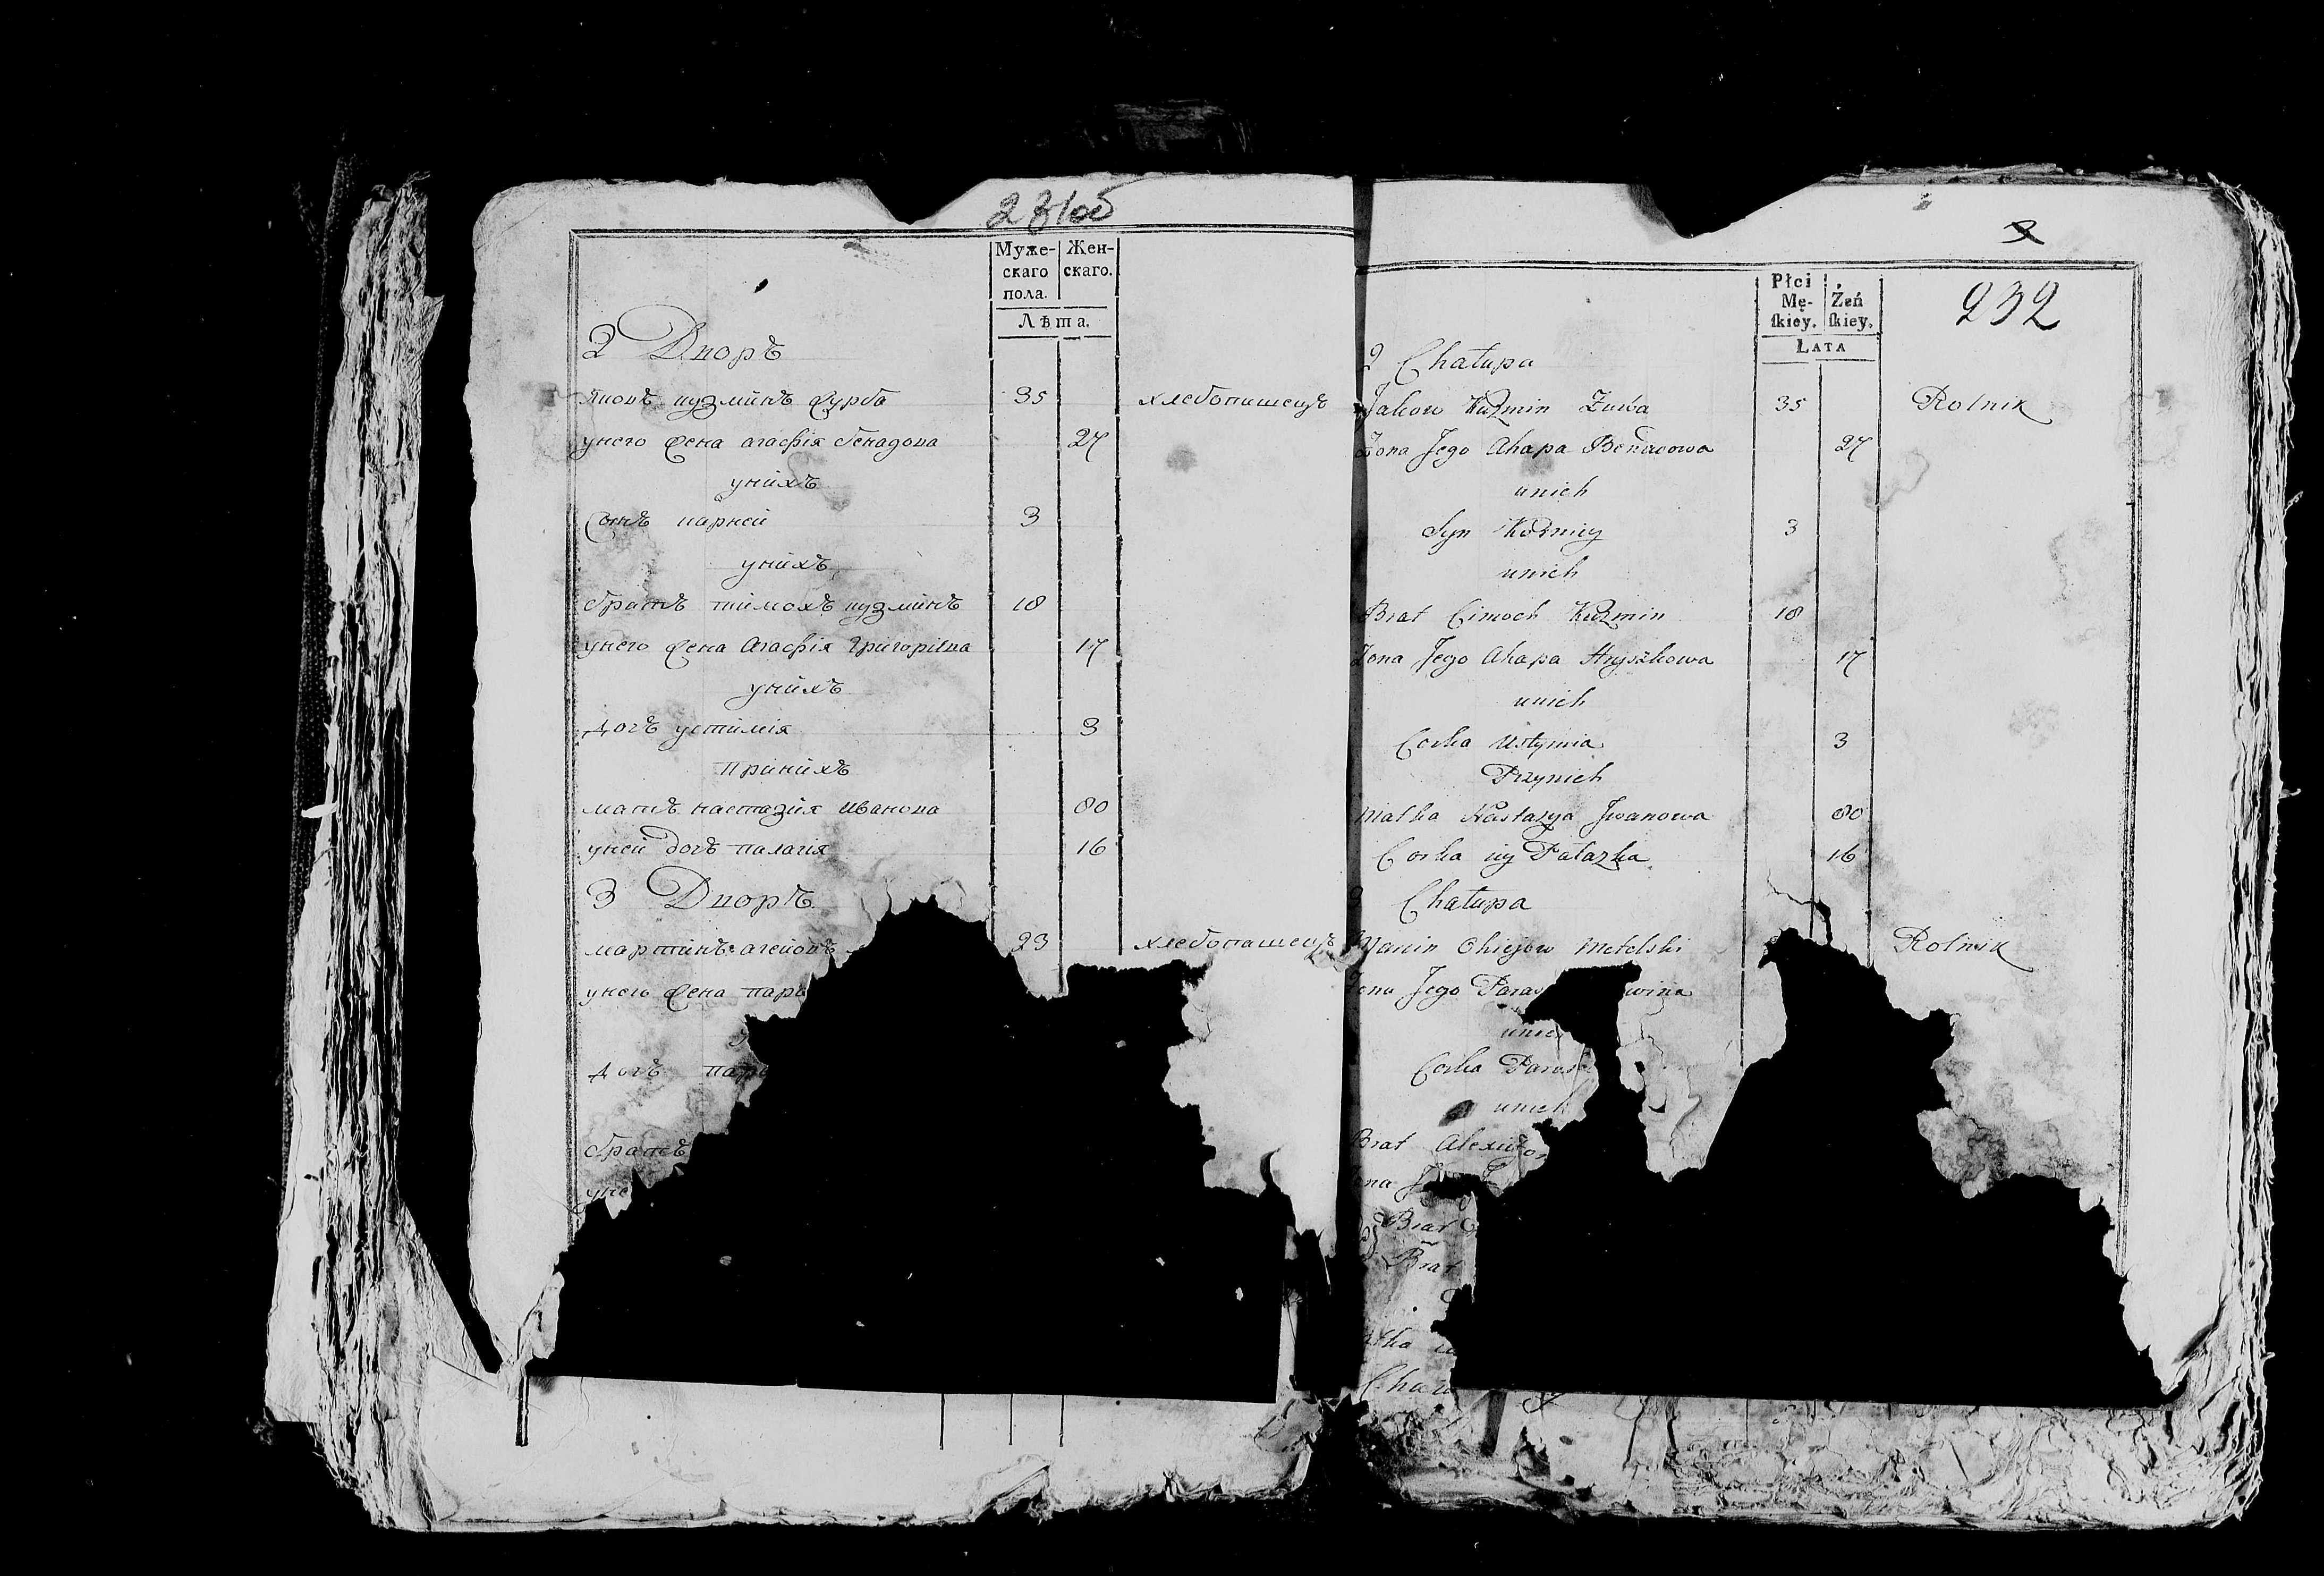 231об
Муже-
скаго
пола.
Жен-
скаго.
Лѣта.
2 Дворъ
Яковъ кузминъ журба 35 хлебопашецъ
унего жена агафія бенадова 27
унихъ
Сынъ карней 3
унихъ
братъ тимохъ кузминъ 18
унего жена Агафія Григоріева 17
унихъ
дочъ устимія 3
принихъ
мать настазия Иванова 80
уней дочъ палагія 16
3 Дворъ
мартинъ агеёвъ 23 хлебопашецъ
унего жена пара
дочъ пара
братъ
уне
232
Płci
Mę-
skiey.
Żeń
skiey.
Lata
2 Chałupa
Jakow Kuzmin Zurba 35 Rolnik
Zona Jego Ahapa Benadowa 27
unich
Syn Karniey 3
unich
Brat Cimoch Kuzmin 18
Zona Jego Ahapa Hryszkowa 17
unich
Corka Ustymia 3
Przynich
Matka Nastazya Jwanowa 80
Corka iey Pałazka 16
3 Chałupa
Marcin Ohiejow Metelski Rolnik
Zona Jego Paras wina
unich
Corka Paras
unich
Brat Alexi
ona J
Brat
Brat
Chału